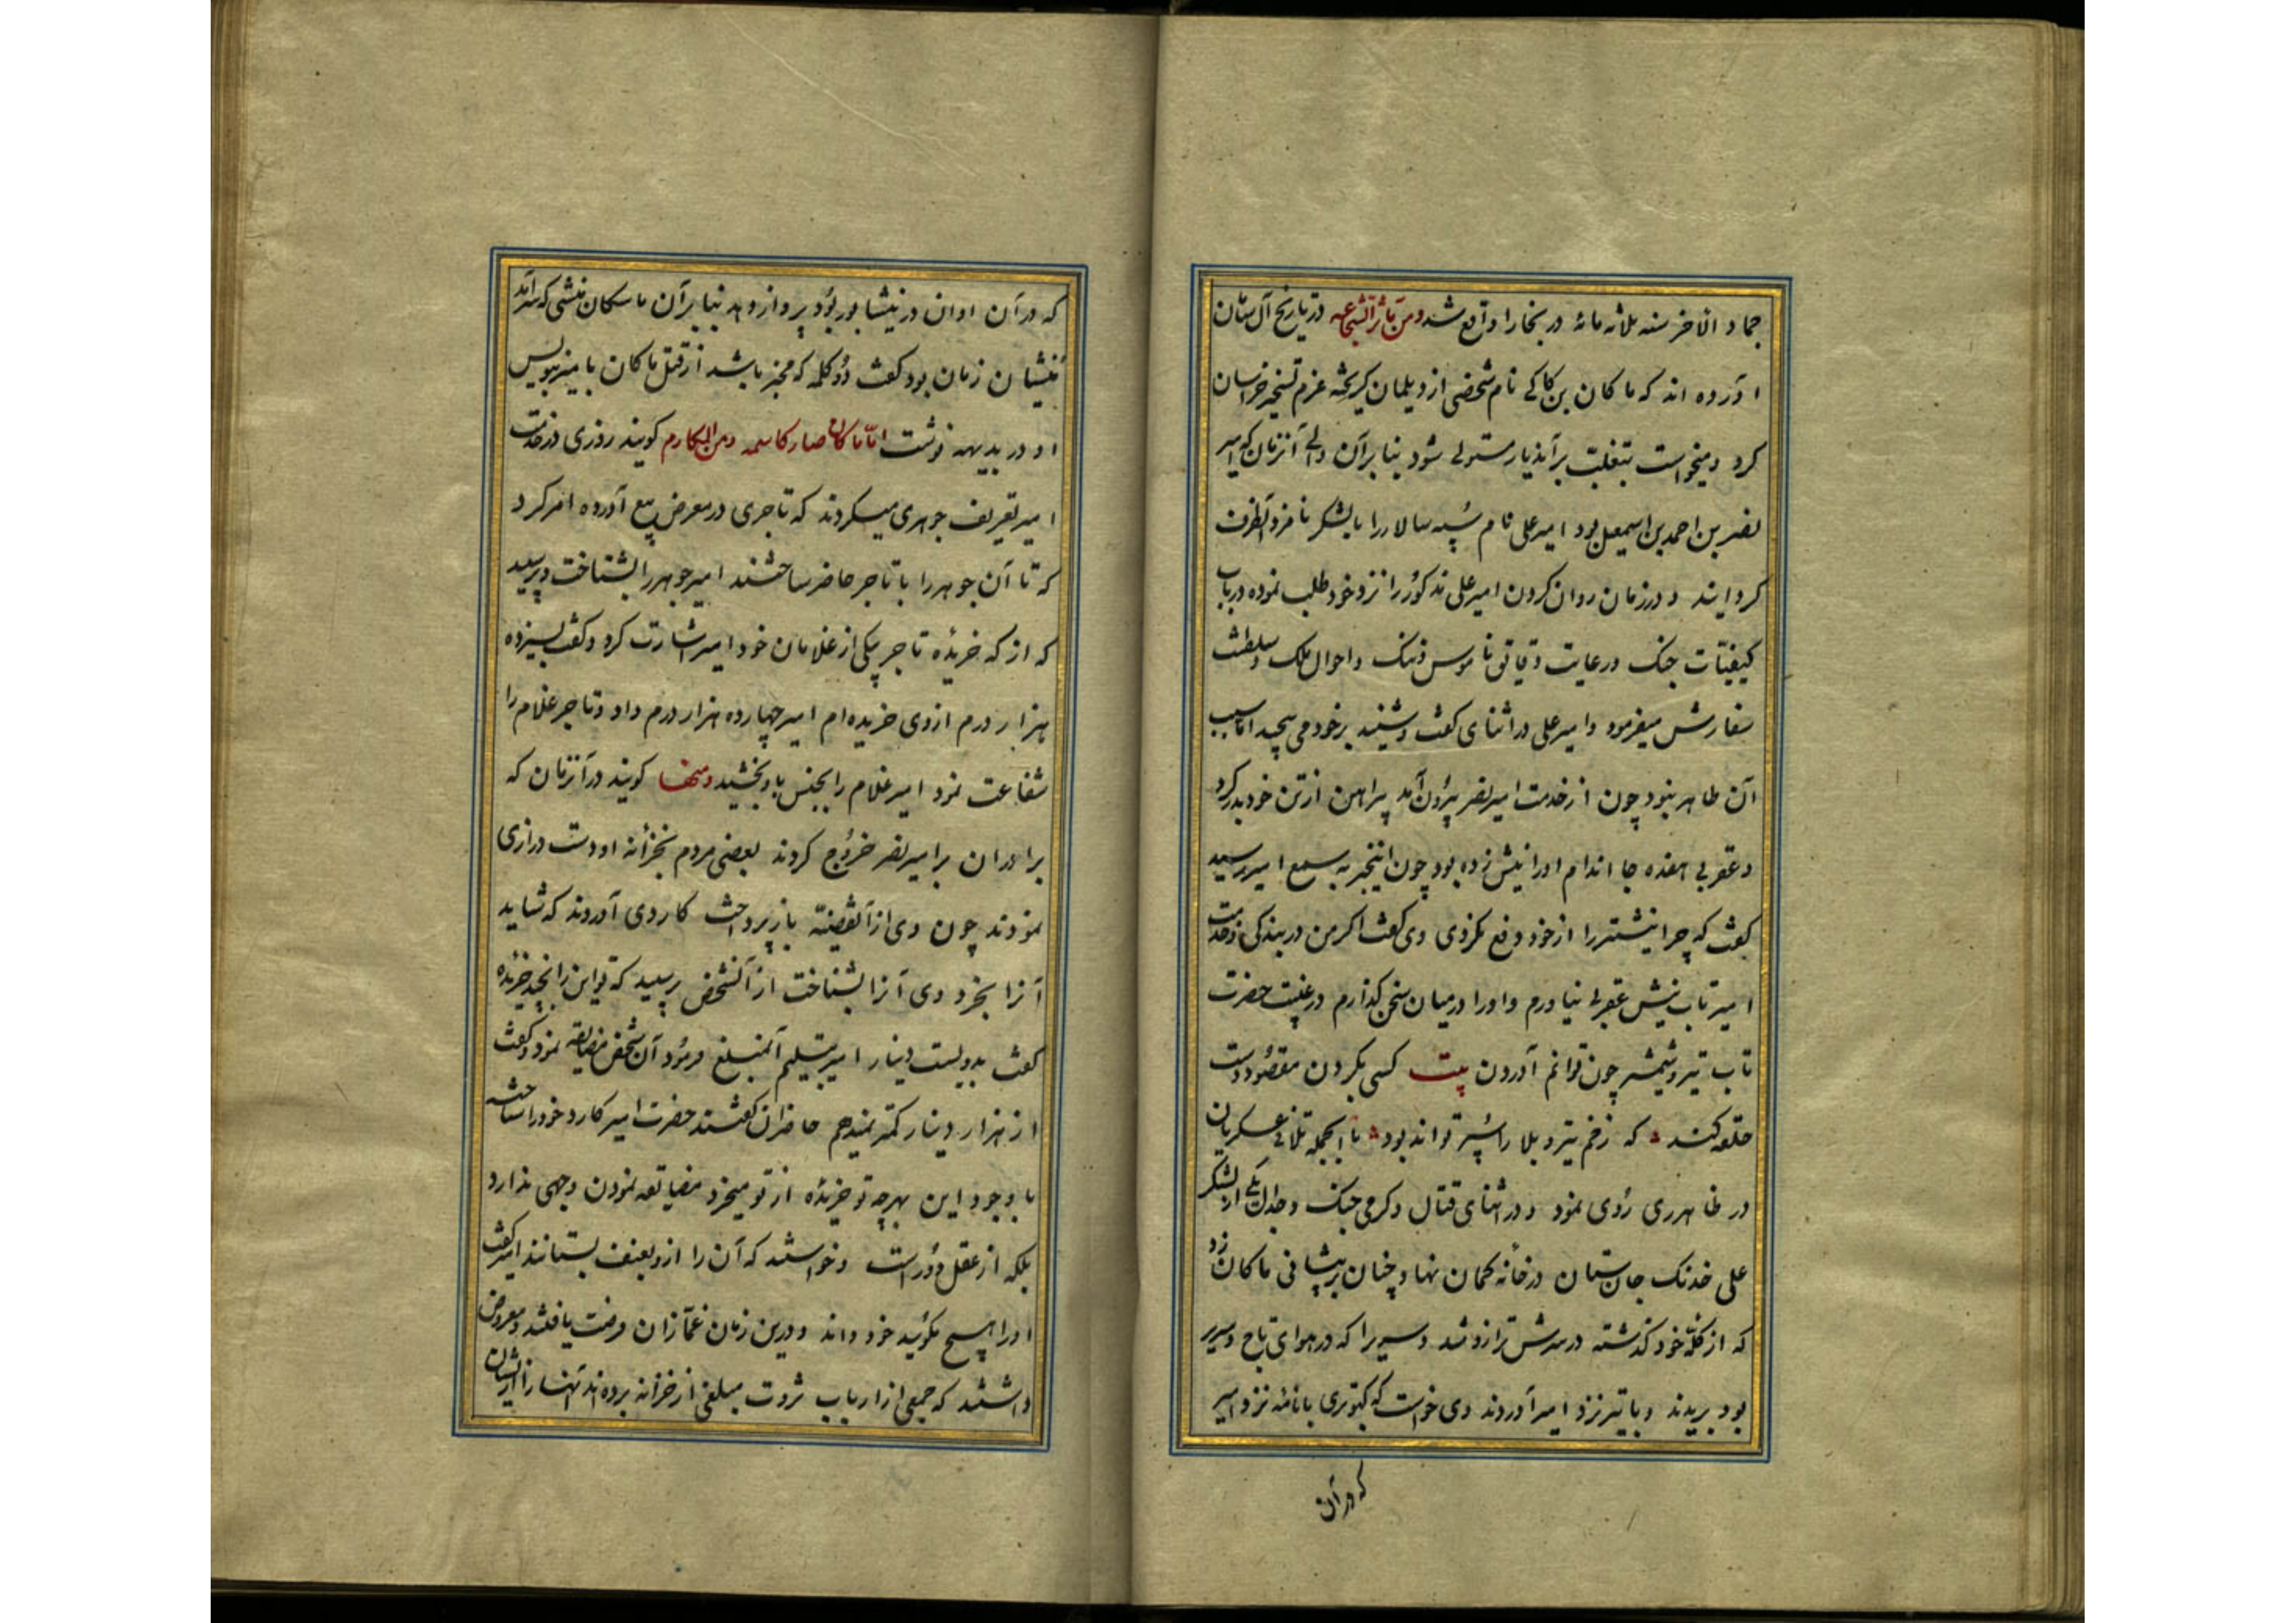 جماد الآخر سنه ثلاثه مائه در بخارا واقع شد ومن مآثر الشجاعه در تاریخ آل سامان
آورده اند که ماکان بن کاکی نام شخصی از دیلمان گریخته عزم تسخیر خراسان
کرد و میخواست بتغلب بر آندیار مستولی شود بنا بر آن والی آنزمان که امیر
نصر بن احمد بن اسمعیل بود امیر علی نام سپه سالار را با لشکر نامزد آنطرف
کردانید و در زمان روان کردن امیر علی مذکور را نزد خود طلب نموده در باب
کیفیّات جنک و رعایت دقایق ناموس و ننک و احوال ملک و سلطنت
سفارش میفرمود و امیر علی در اثنای گفت و شنید بر خود می پیچید اما سبب
آن ظاهر نبود چون از خدمت امیر نصر بیرون آمد پیراهن از تن خود بدر کرد
و عقربی هفده جا اندام او را نیش زده بود چون اینخبر به سمع امیر رسید
گفت که چرا نیشتر را از خود دفع نکردی وی گفت اکر من در بندکی و خدمت
امیر تاب نیش عقربی نیاورم و او را در میان سخن گذارم در غیبت حضرت
تاب تیر و شمشیر چون توانم آوردن بیت کسی بکردن مقصود دست
حلقه کند که زخم تیر و بلا را سپر تواند بود با الجمله تلاقی عسکریان
در ظاهر ری روی نمود و در اثنای قتال و کرمی جنک و جدال یکی از لشکر
علی خدنک جان ستان در خانه کمان نهاد و چنان بر پیشانی ماکان زد
که از کلّه خود گذشته در سرش ترازو شد و سریرا که در هوای تاج و سریر
بود بریدند و با تیر نزد امیر آوردند وی خواست که کبوتری با نامه نزد امیر
که در آن
که در آن اوان در نیشابور بود پرواز دهد بنا بر آن ماسکان منشی که سرآمد
منشیان زمان بود گفت دو کلمه که مخبر باشد از قتل ماکان بامیر بنویس
او در بدیهه نوشت امّا ماکان صار کاسمه ومن المکارم کویند روزی در خدمت
امیر تعریف جوهری میکردند که تاجری در معرض بیع آورده امر کرد
که تا آن جوهر را با تاجر حاضر ساختند امیر جوهر را بشناخت و پرسید
که از که خریده تاجر بیکی از غلامان خود امیر اشارت کرد و گفت بسیزده
هزار درم از وی خریده ام امیر چهارده هزار درم داد و تاجر غلام را
شفاعت نمود امیر غلام را بجنس باو بخشید ومنها کویند در آنزمان که
برادران بر امیر نصر خروج کردند بعضی مردم بخزانه او دست درازی
نمودند چون وی از آنقضیّه باز پرداخت کاردی آوردند که شاید
آنرا بخرد وی آنرا بشناخت از آنشخص پرسید که تو این را بچند خریده
گفت بدویست دینار امیر بتسلیم آنمبلغ فرمود آن شخص مضایقه نمود و گفت
از هزار دینار کمتر نمیدهم حاضران گفتند حضرت امیر کارد خود را شناخته
با وجود این بهرچه تو خریده از تو میخرد مضایقه نمودن وجهی ندارد
بلکه از عقل دور است و خواستند که آن را از و بعنف بستانند امیر گفت
او را هیچ مکوئید خود داند و درین زمان غمّازان فرصت یافتند و معروض
داشتند که جمعی از ارباب ثروت مبلغی از خزانه برده اند آنها را از ایشان